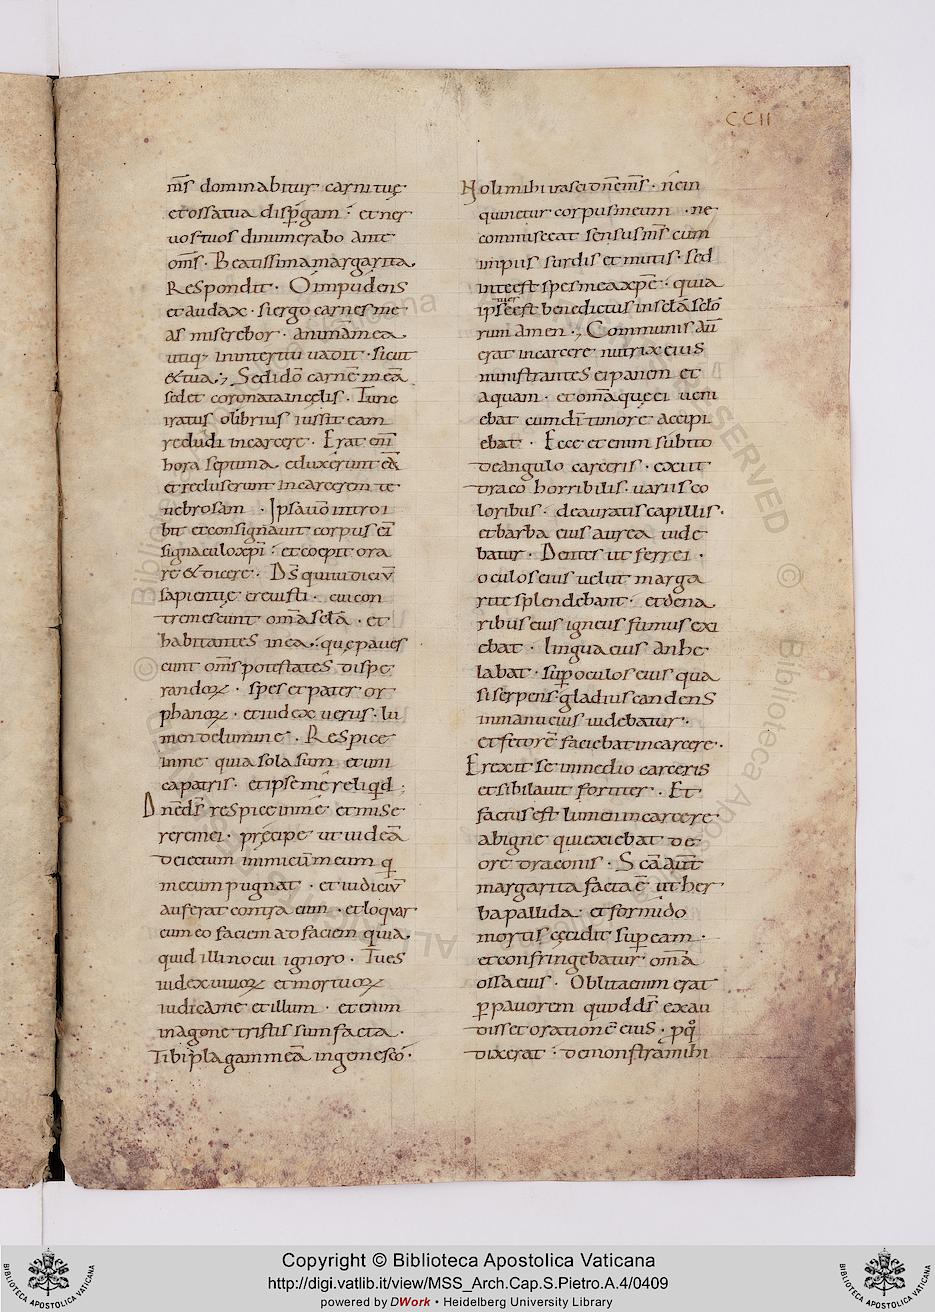 CCII
m̅s dominabitur carni tuę
et ossa tua disp̱gam · et ner
uos tuos dinumerabo ante
om̅s · Beatissima margarita
Respondit · O impudens
et audax · si ergo carnes me
as miserebor · anima̅ mea
utiq; in interitu uadit · sicut
& tua ·; Sed ido̅ carne̅ mea̅
sedet coronata in cęlis · Tunc
iratus olibrius iussit eam
recludi in carcere · Erat eni̅
hora septima · eduxerunt ea̅
et recluserunt in carcerem te
nebrosam · Ipsa uo̅ introi
bit et consignauit corpus ei̅
signaculo xp̅i · et coepit ora
re & dicere · D̅s qui iudiciu̅
sapientię creuisti · cui con
tremescunt om̅a sc̅la · et
habitantes in ea · que paues
cunt om̅s potestates · dispe
randoꝝ · spes et pater or
phanoꝝ · et iudex uerus · lu
men de lumine · Respice
in me quia sola sum et uni
ca patris · et ipse me reliqd ;
Dne d̅s respice in me et mise
rere mei · pręcipe ut uidea̅
deiectum inimicu̅ meum q
mecum pugnat · et iudiciu̅
auferat contra eum · et loquar
cum eo faciem ad faciem quia
quid illi nocui ignoro · Tu es
iudex uiuoꝝ et mortuoꝝ
iudica me et illum · et enim
in agone tristis sum facta ·
Tibi plagam mea̅ ingenesco ·
Noli mihi irasci dn̅e m̅s · n̅ein
quinetur corpus meum · ne
commisceat sensus m̅s cum
impiis surdis et mutis · sed
in te est spes mea xp̅e · quia
ipse est benedictus in sc̅la sc̅lo
rum amen ·; Communis au̅
erat in carcere nutrix eius
ministrantes ei panem et
aquam · et om̅a que ei ueni
ebat cum di̅ timore accipi
ebat · Ecce et enim subito
de angulo carceris · exiit
draco horribilis · uariis co
loribus · deauratis capillis ·
et barba eius aurea uide
batur · Dentes ut ferrei ·
oculos eius uelut marga
rite splendebant · et de na
ribus eius igneus fumus exi
ebat · lingua eius anhe
labat · sup oculos eius qua
si serpens · gladius candens
in manu eius uidebatur ·
et fetore̅ faciebat in carcere ·
Erexit se in medio carceris
et sibilauit fortiter · Et
factus est lumen in carcere ·
ab igne qui exiebat de
ore draconis · Sc̅a aut̅
margarita facta e̅ ut her
ba pallida · et formido
mortis cecidit sup eam ·
et confringebatur om̅a
ossa eius · Oblita enim erat
p pauorem quod d̅s exau
disset oratione̅ eius · pqo̅
dixerat · demonstra mihi
Copyright © Biblioteca Apostolica Vaticana
http://digi.vatlib.it/view/MSS_Arch.Cap.S.Pietro.A.4/0409
powered by DWork • Heidelberg University Library